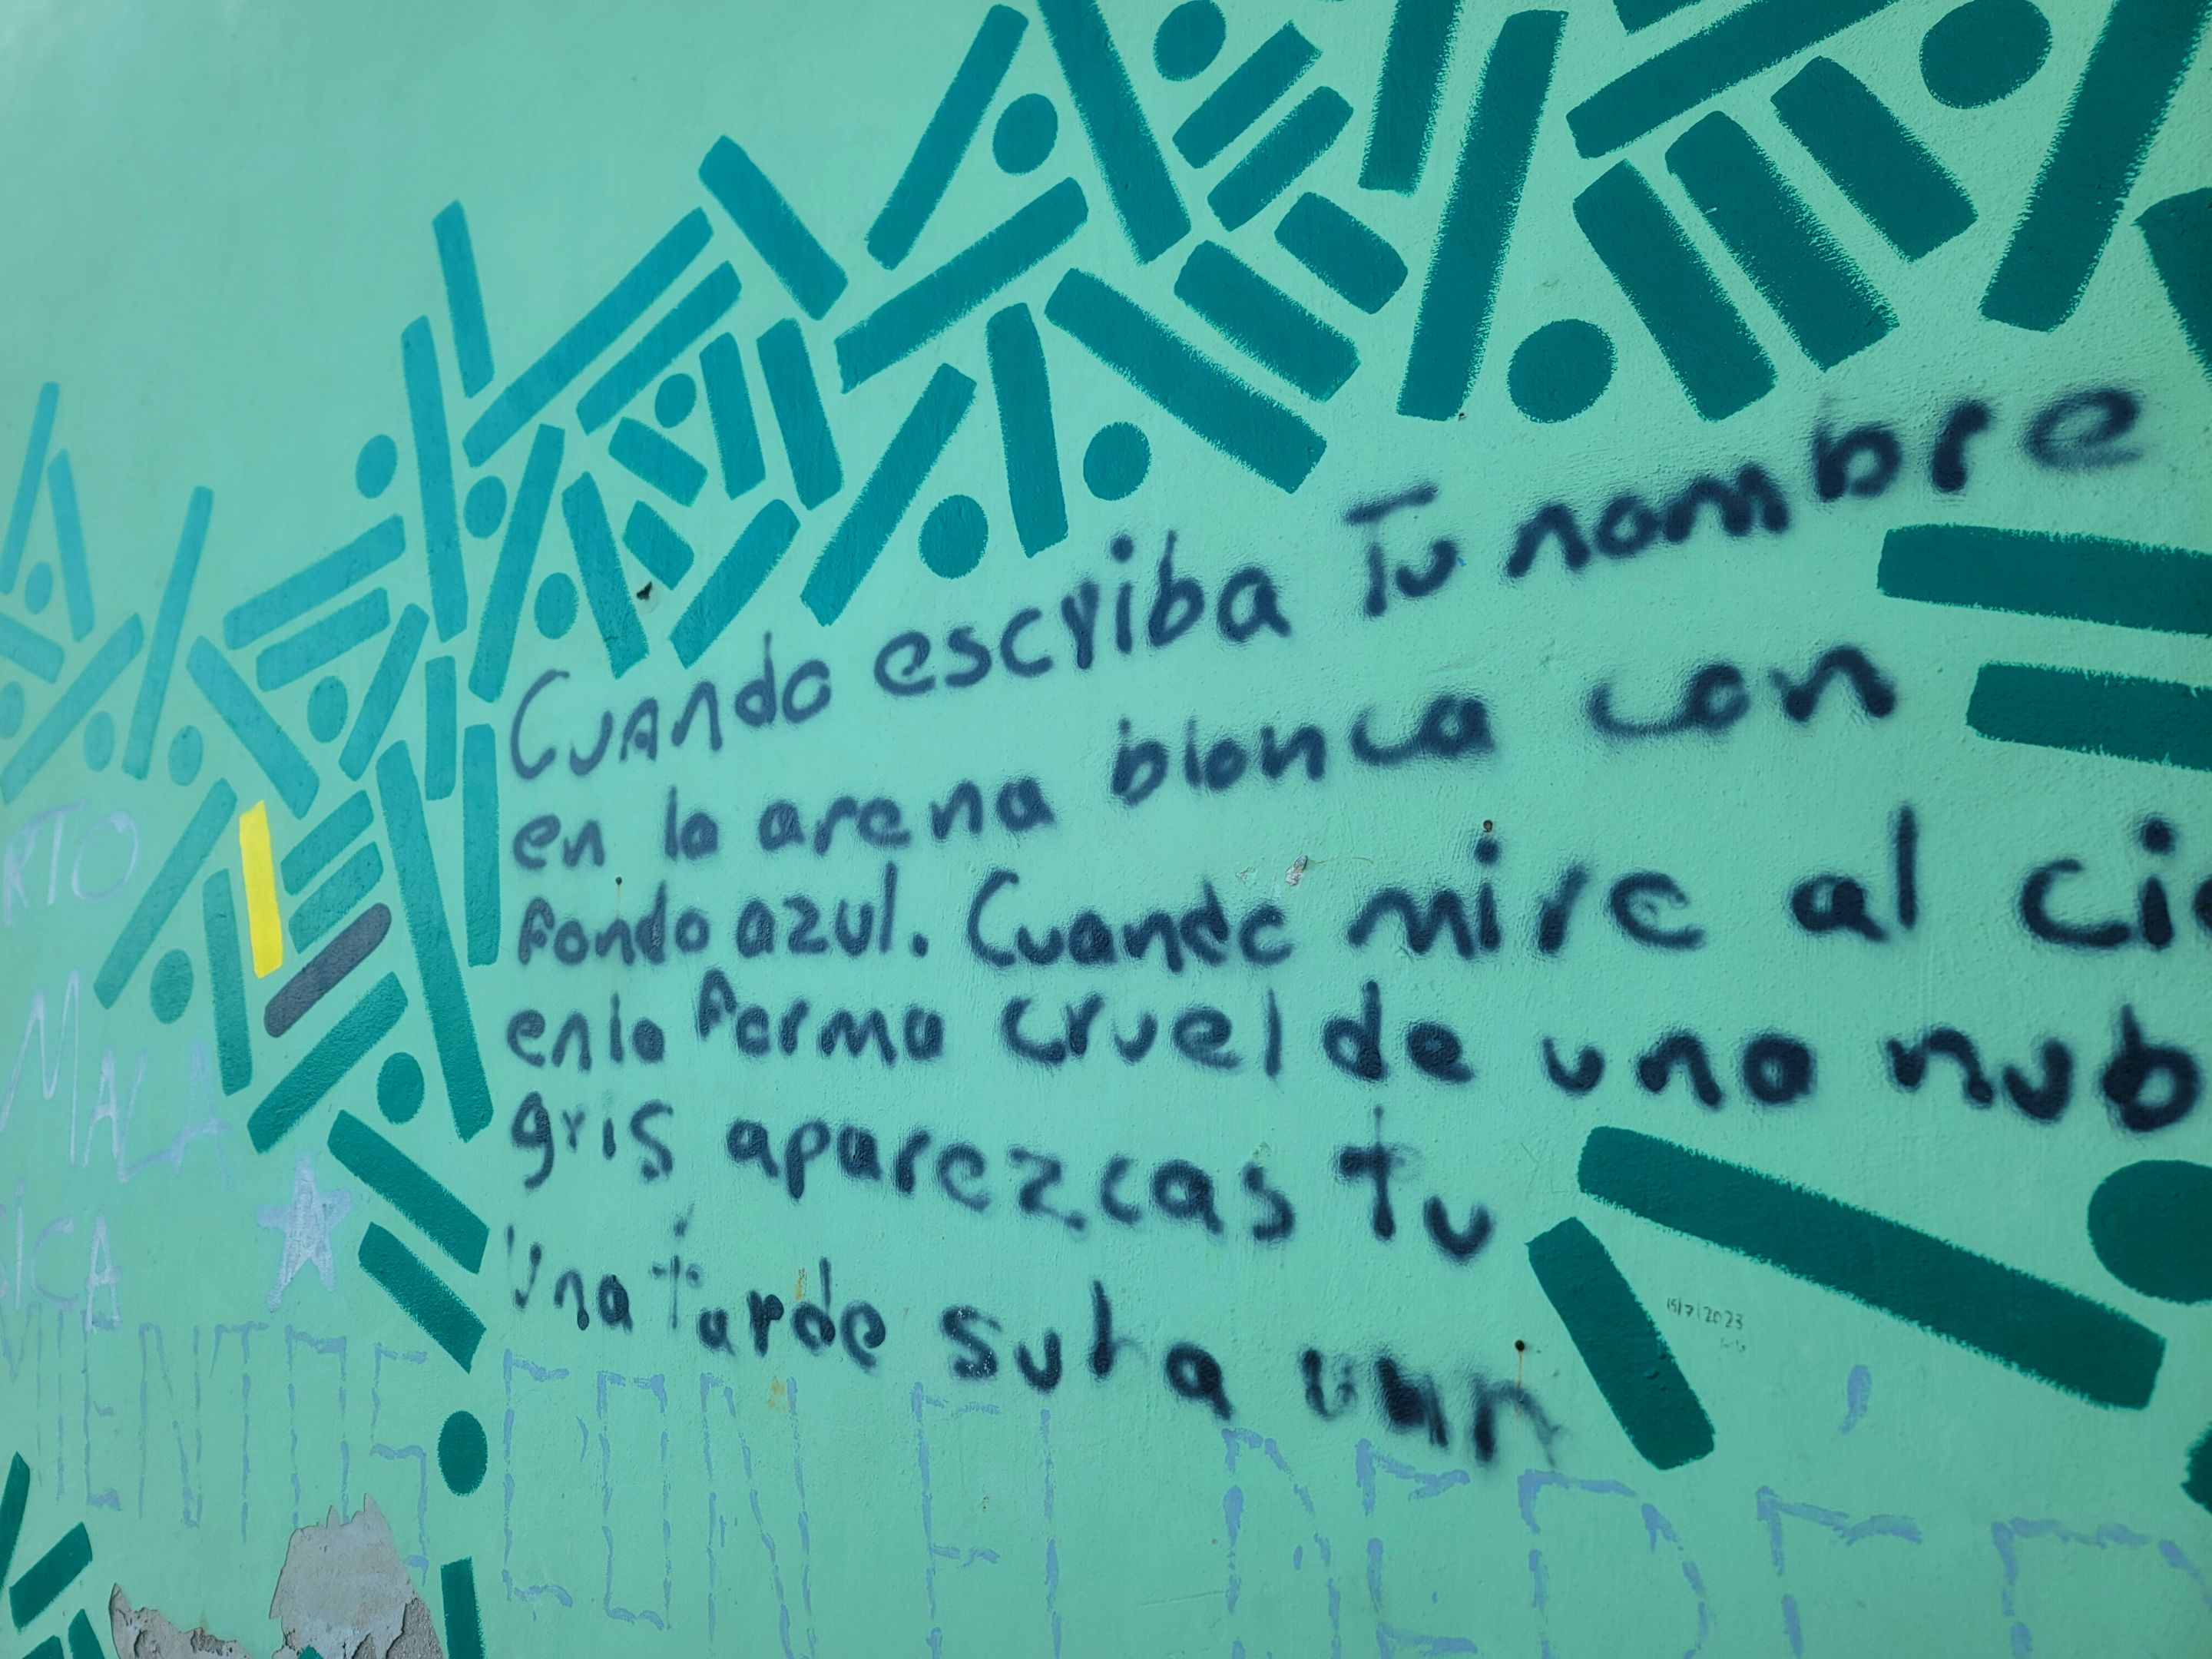 Cuando escriba Tu nombre
en la arena blanca con
fondo azul. Cuando mire al cie
en la forma cruel de una nub
gris aparezcas tu
Una tarde suba una
RTO
MALA
SICA
MIENTOS CON EL
15/7/2023